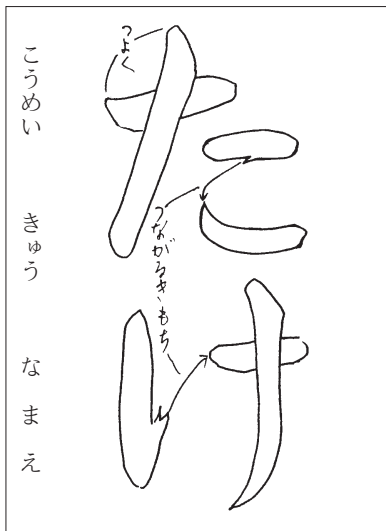 たけ
つよく
つながるきもち
こうめい　きゅう　なまえ